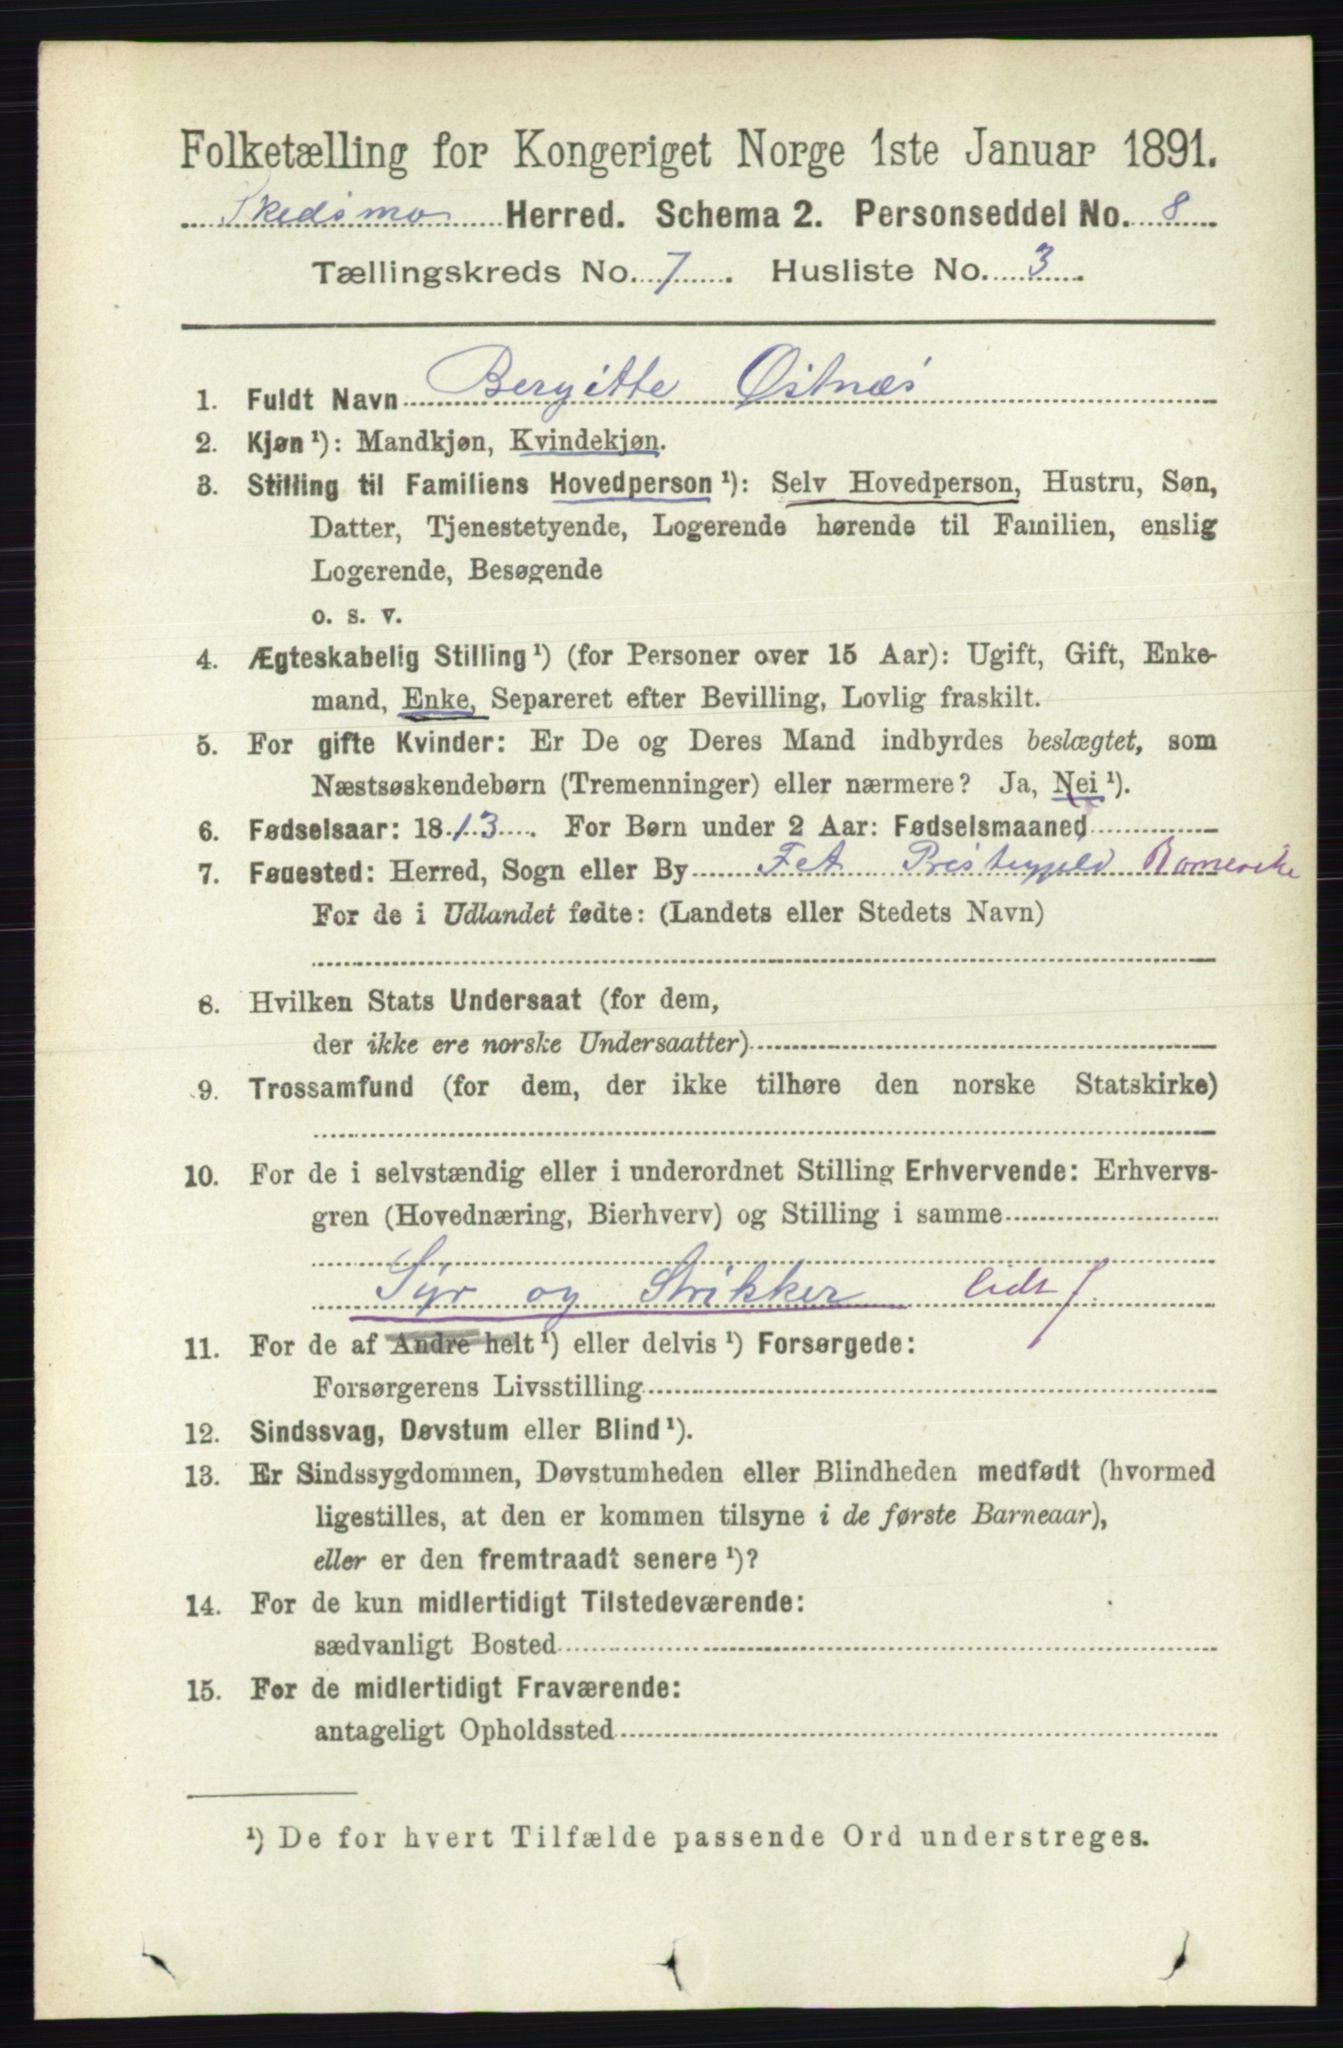 Folketælling for Kongeriget Norge 1ste Januar 1891.
Skedsmo Herred. Schema 2. Personseddel No. 8
Tællingskreds No. 7. Husliste No. 3.
1. Fuldt Navn Bergitte Østnæs
2. Kjøn ¹): Mandkjøn, Kvindekjøn.
3. Stilling til Familiens Hovedperson ¹): Selv Hovedperson, Hustru, Søn,
Datter, Tjenestetyende, Logerende hørende til Familien, enslig
Logerende, Besøgende
o. s. v.
4. Ægteskabelig Stilling ¹) (for Personer over 15 Aar): Ugift, Gift, Enke-
mand, Enke, Separeret efter Bevilling, Lovlig fraskilt.
5. For gifte Kvinder: Er De og Deres Mand indbyrdes beslægtet, som
Næstsøskendebørn (Tremenninger) eller nærmere? Ja, Nei ¹).
6. Fødselsaar: 1813. For Børn under 2 Aar: Fødselsmaaned
7. Fødested: Herred, Sogn eller By Fet Præstegjeld Romerike
For de i Udlandet fødte: (Landets eller Stedets Navn)
8. Hvilken Stats Undersaat (for dem,
der ikke ere norske Undersaatter)
9. Trossamfund (for dem, der ikke tilhøre den norske Statskirke)
10. For de i selvstændig eller i underordnet Stilling Erhvervende: Erhvervs-
gren (Hovednæring, Bierhverv) og Stilling i samme
Syr og Strikker lidt
11. For de af Andre helt ¹) eller delvis ¹) Forsørgede:
Forsørgerens Livsstilling
12. Sindssvag, Døvstum eller Blind ¹).
13. Er Sindssygdommen, Døvstumheden eller Blindheden medfødt (hvormed
ligestilles, at den er kommen tilsyne i de første Barneaar),
eller er den fremtraadt senere ¹)?
14. For de kun midlertidigt Tilstedeværende:
sædvanligt Bosted
15. For de midlertidigt Fraværende:
antageligt Opholdssted
¹) De for hvert Tilfælde passende Ord understreges.